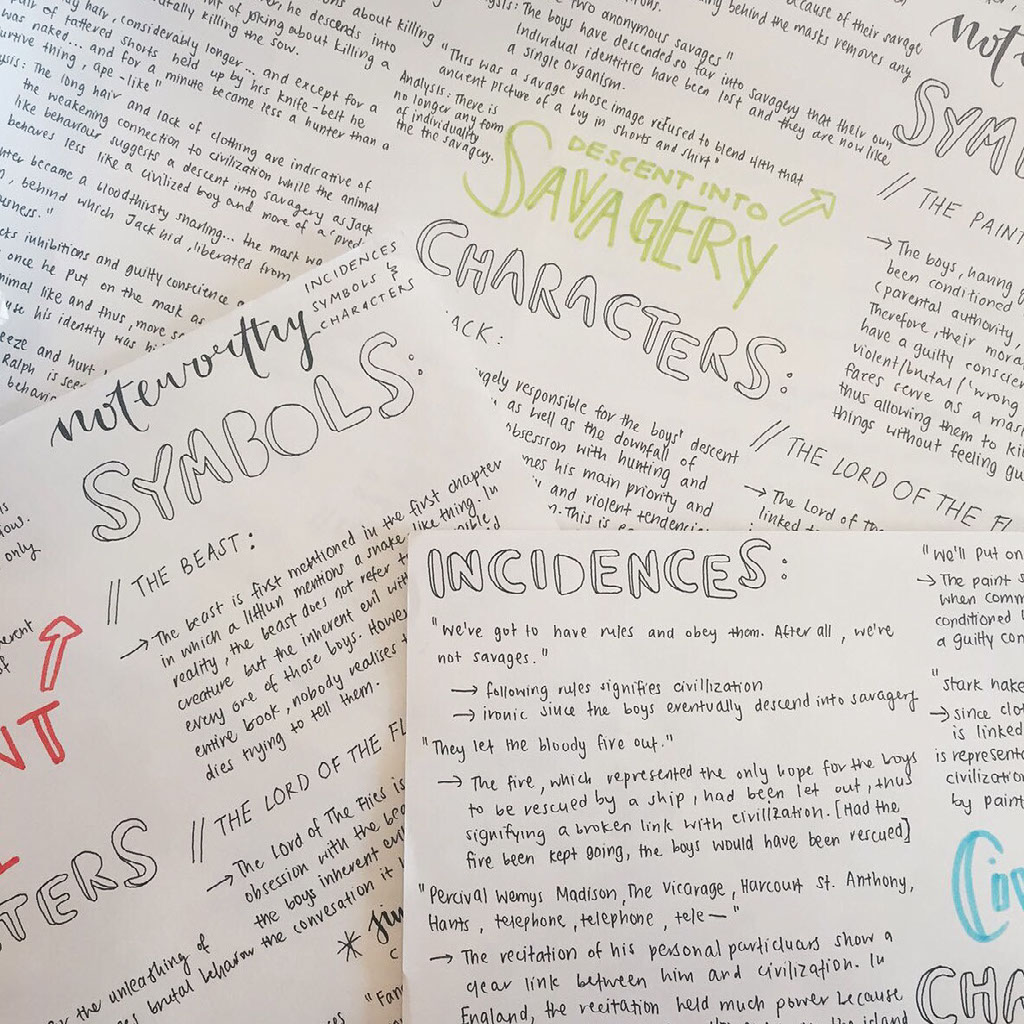 hair, considerably longer... and except for a
pair of tattered shorts held up by his knife-belt he
was naked... and for a minute became less a hunter than a
furtive thing, ape-like"
The long hair and lack of clothing are indicative of
the weakening connection to civilization while the animal
like behaviour suggests a descent into savagery as Jack
behaves less like a civilized boy and more of a
became a bloodthirsty snarling... the mask wa
behind which Jack hid, liberated from
inhibitions and guilty conscience
once he put on the mask as
animal like and thus, more
his identity was
and hurt
Ralph is
he descends into
of joking about killing a
brutally killing the sow.
about killing
two anonymous savages"
The boys have descended so far into savagery that their own
individual identities have been lost and they are now like
a single organism.
"This was a savage whose image refused to blend with that
ancient picture of a boy in shorts and shirt"
Analysis: There is
no longer any form
of individuality
the the savagery.
because of their savage
being behind the masks removes any
DESCENT INTO
SAVAGERY
CHARACTERS:
ACK:
responsible for the boys' descent
as well as the downfall of
obsession with hunting and
his main priority and
and violent
This is
SYM
// THE PAIN
→ The boys, having
been conditioned
(parental authority,
Therefore, their mora
have a guilty conscien
violent/brutal ("wrong
faces serve as a mas
thus allowing them to ki
things without feeling gu
// THE LORD OF THE FL
→ The Lord of the
linked to
noteworthy
INCIDENCES
SYMBOLS &
CHARACTERS
SYMBOLS:
// THE BEAST:
→ The beast is first mentioned in the first chapter
in which a littlun mentions a snake like thing. In
reality, the beast does not refer to
creature but the inherent evil with
every one of those boys. Howe
entire book, nobody realises
dies trying to tell them.
// THE LORD OF THE FL
→ The Lord of The Flies is
obsession with the bea
the boys inherent evi
the conversation it
NT
TERS
the unleashing of
brutal behaviour
INCIDENCES:
"We've got to have rules and obey them. After all, we're
not savages."
→ following rules signifies civillization
→ ironic since the boys eventually descend into savagery
"They let the bloody fire out."
→ The fire, which represented the only hope for the boys
to be rescued by a ship, had been let out, thus
signifying a broken link with civilization. [Had the
fire been kept going, the boys would have been rescued]
"Percival Wemys Madison, The Vicarage, Harcourt St. Anthony,
Hants, telephone, telephone, tele—"
→ The recitation of his personal particluars show a
clear link between him and civilization. In
England, the recitation held much power because
the island
"We'll put on
→ The paint s
when comm
conditioned
a guilty con
"stark nake
→ since clot
is linked
is represente
civilization
by paint
CHA